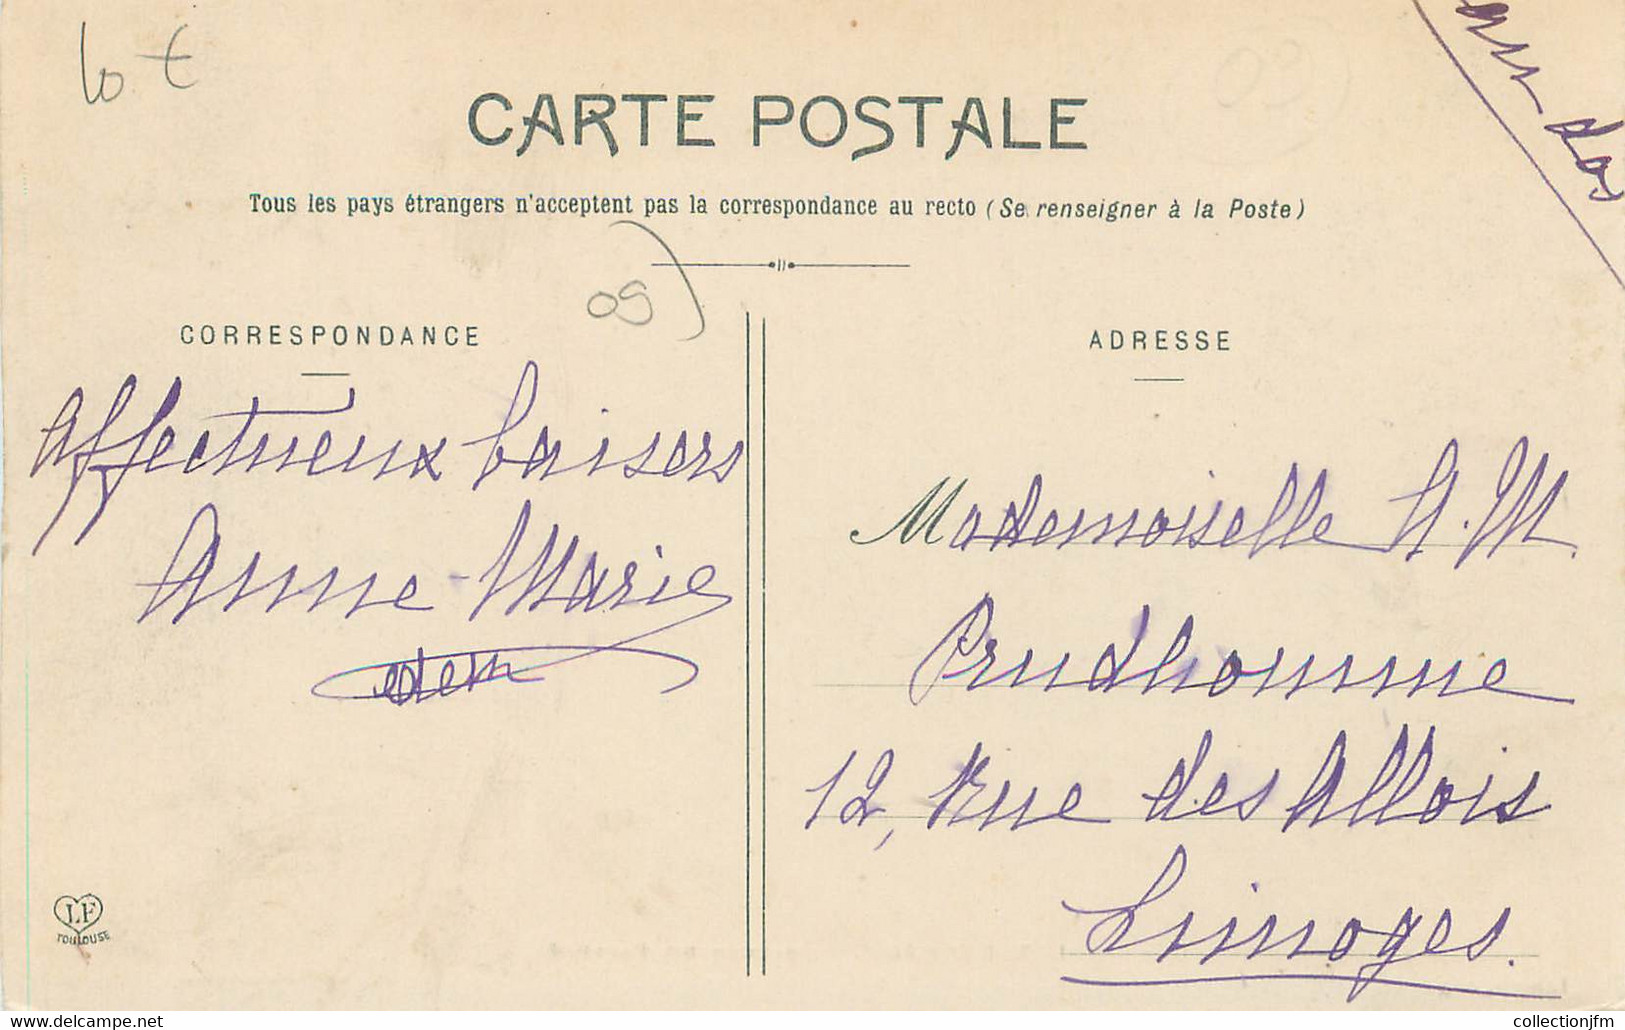 10 €
au dos
CARTE POSTALE
Tous les pays étrangers n'acceptent pas la correspondance au recto (Se renseigner à la Poste)
09
CORRESPONDANCE
Affectueux baisers
Anne-Marie
ADRESSE
Mademoiselle A. M.
Prudhomme
12, Rue des Allois
Limoges.
LF
TOULOUSE
collectionjfm